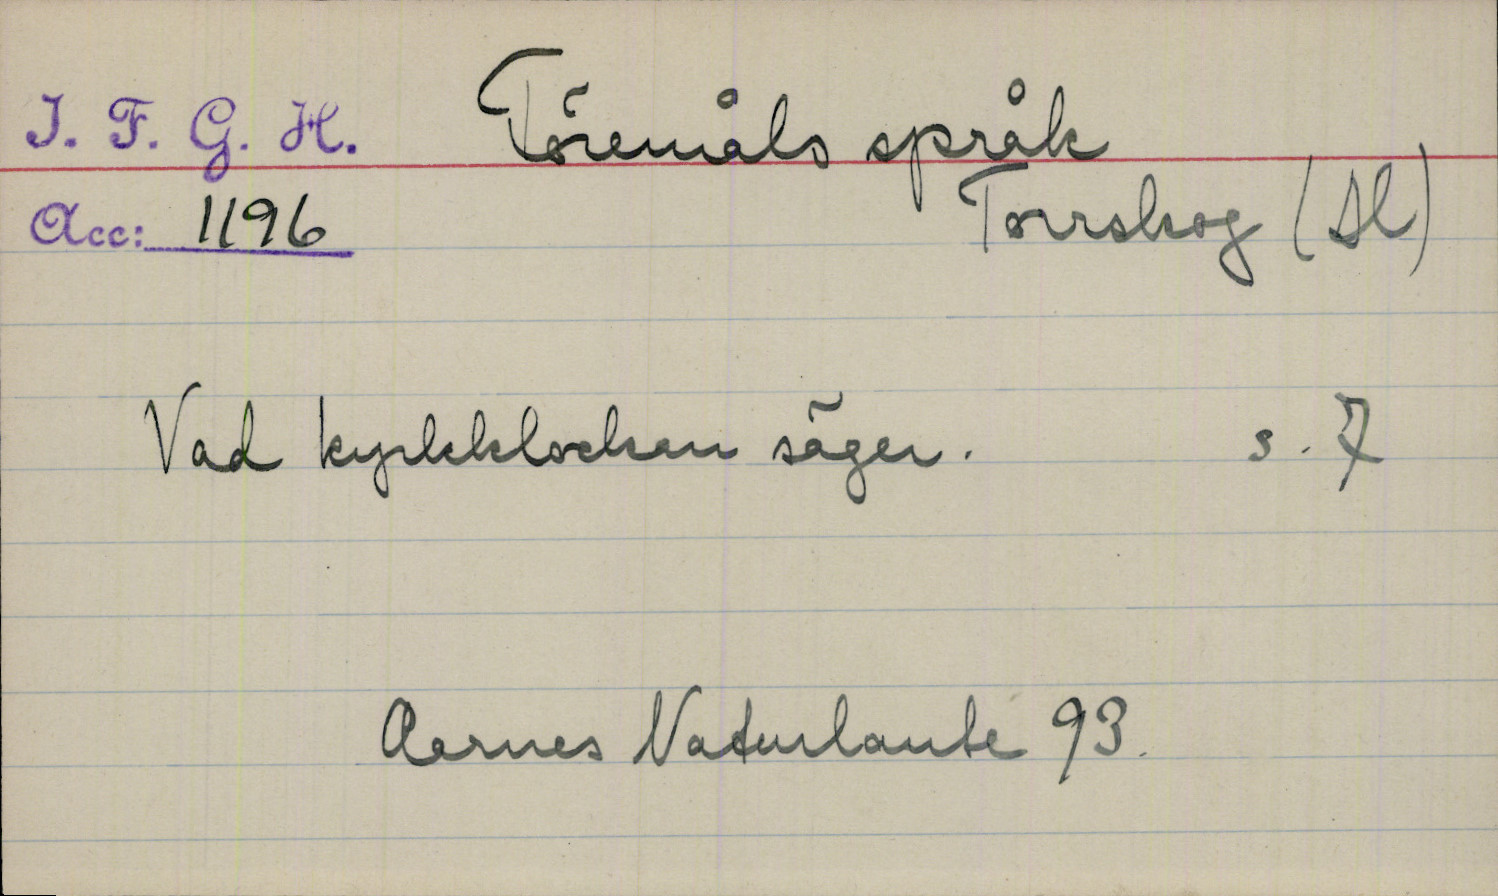 I. F. G. H. Föremåls språk
Acc: 1196 Torrskog (Dl)
Vad kyrkklockan säger. s. 7
Aarnes Naturlaute 93.